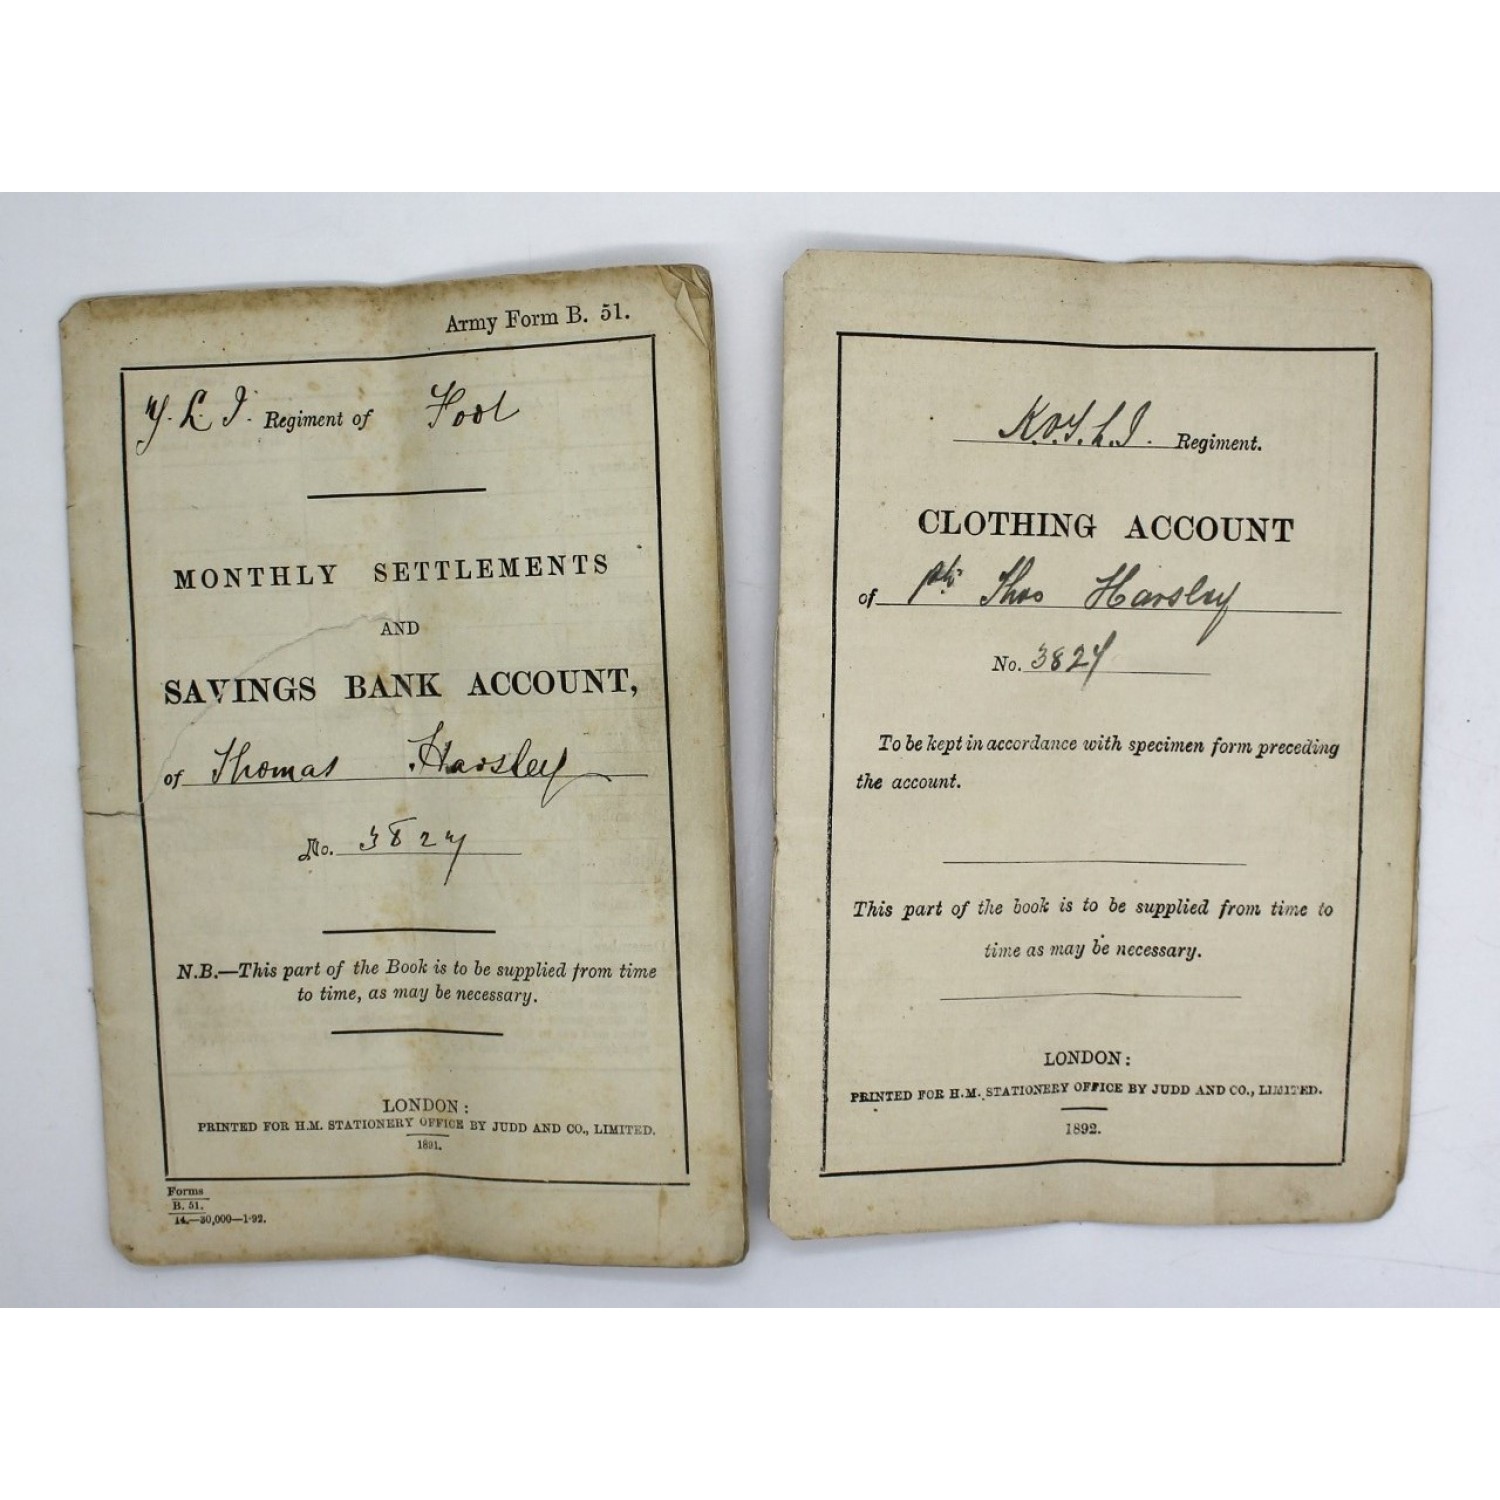 Army Form B. 51.
Y. L. I. Regiment of Foot
MONTHLY SETTLEMENTS
AND
SAVINGS BANK ACCOUNT,
of Thomas Harsley
No. 3827
N.B.—This part of the Book is to be supplied from time
to time, as may be necessary.
LONDON:
PRINTED FOR H.M. STATIONERY OFFICE BY JUDD AND CO., LIMITED.
1891.
Forms
B. 51.
14.—30,000—1-92.
K.O.Y.L.I. Regiment.
CLOTHING ACCOUNT
of Pte Thos Harsley
No. 3827
To be kept in accordance with specimen form preceding
the account.
This part of the book is to be supplied from time to
time as may be necessary.
LONDON:
PRINTED FOR H.M. STATIONERY OFFICE BY JUDD AND CO., LIMITED.
1892.